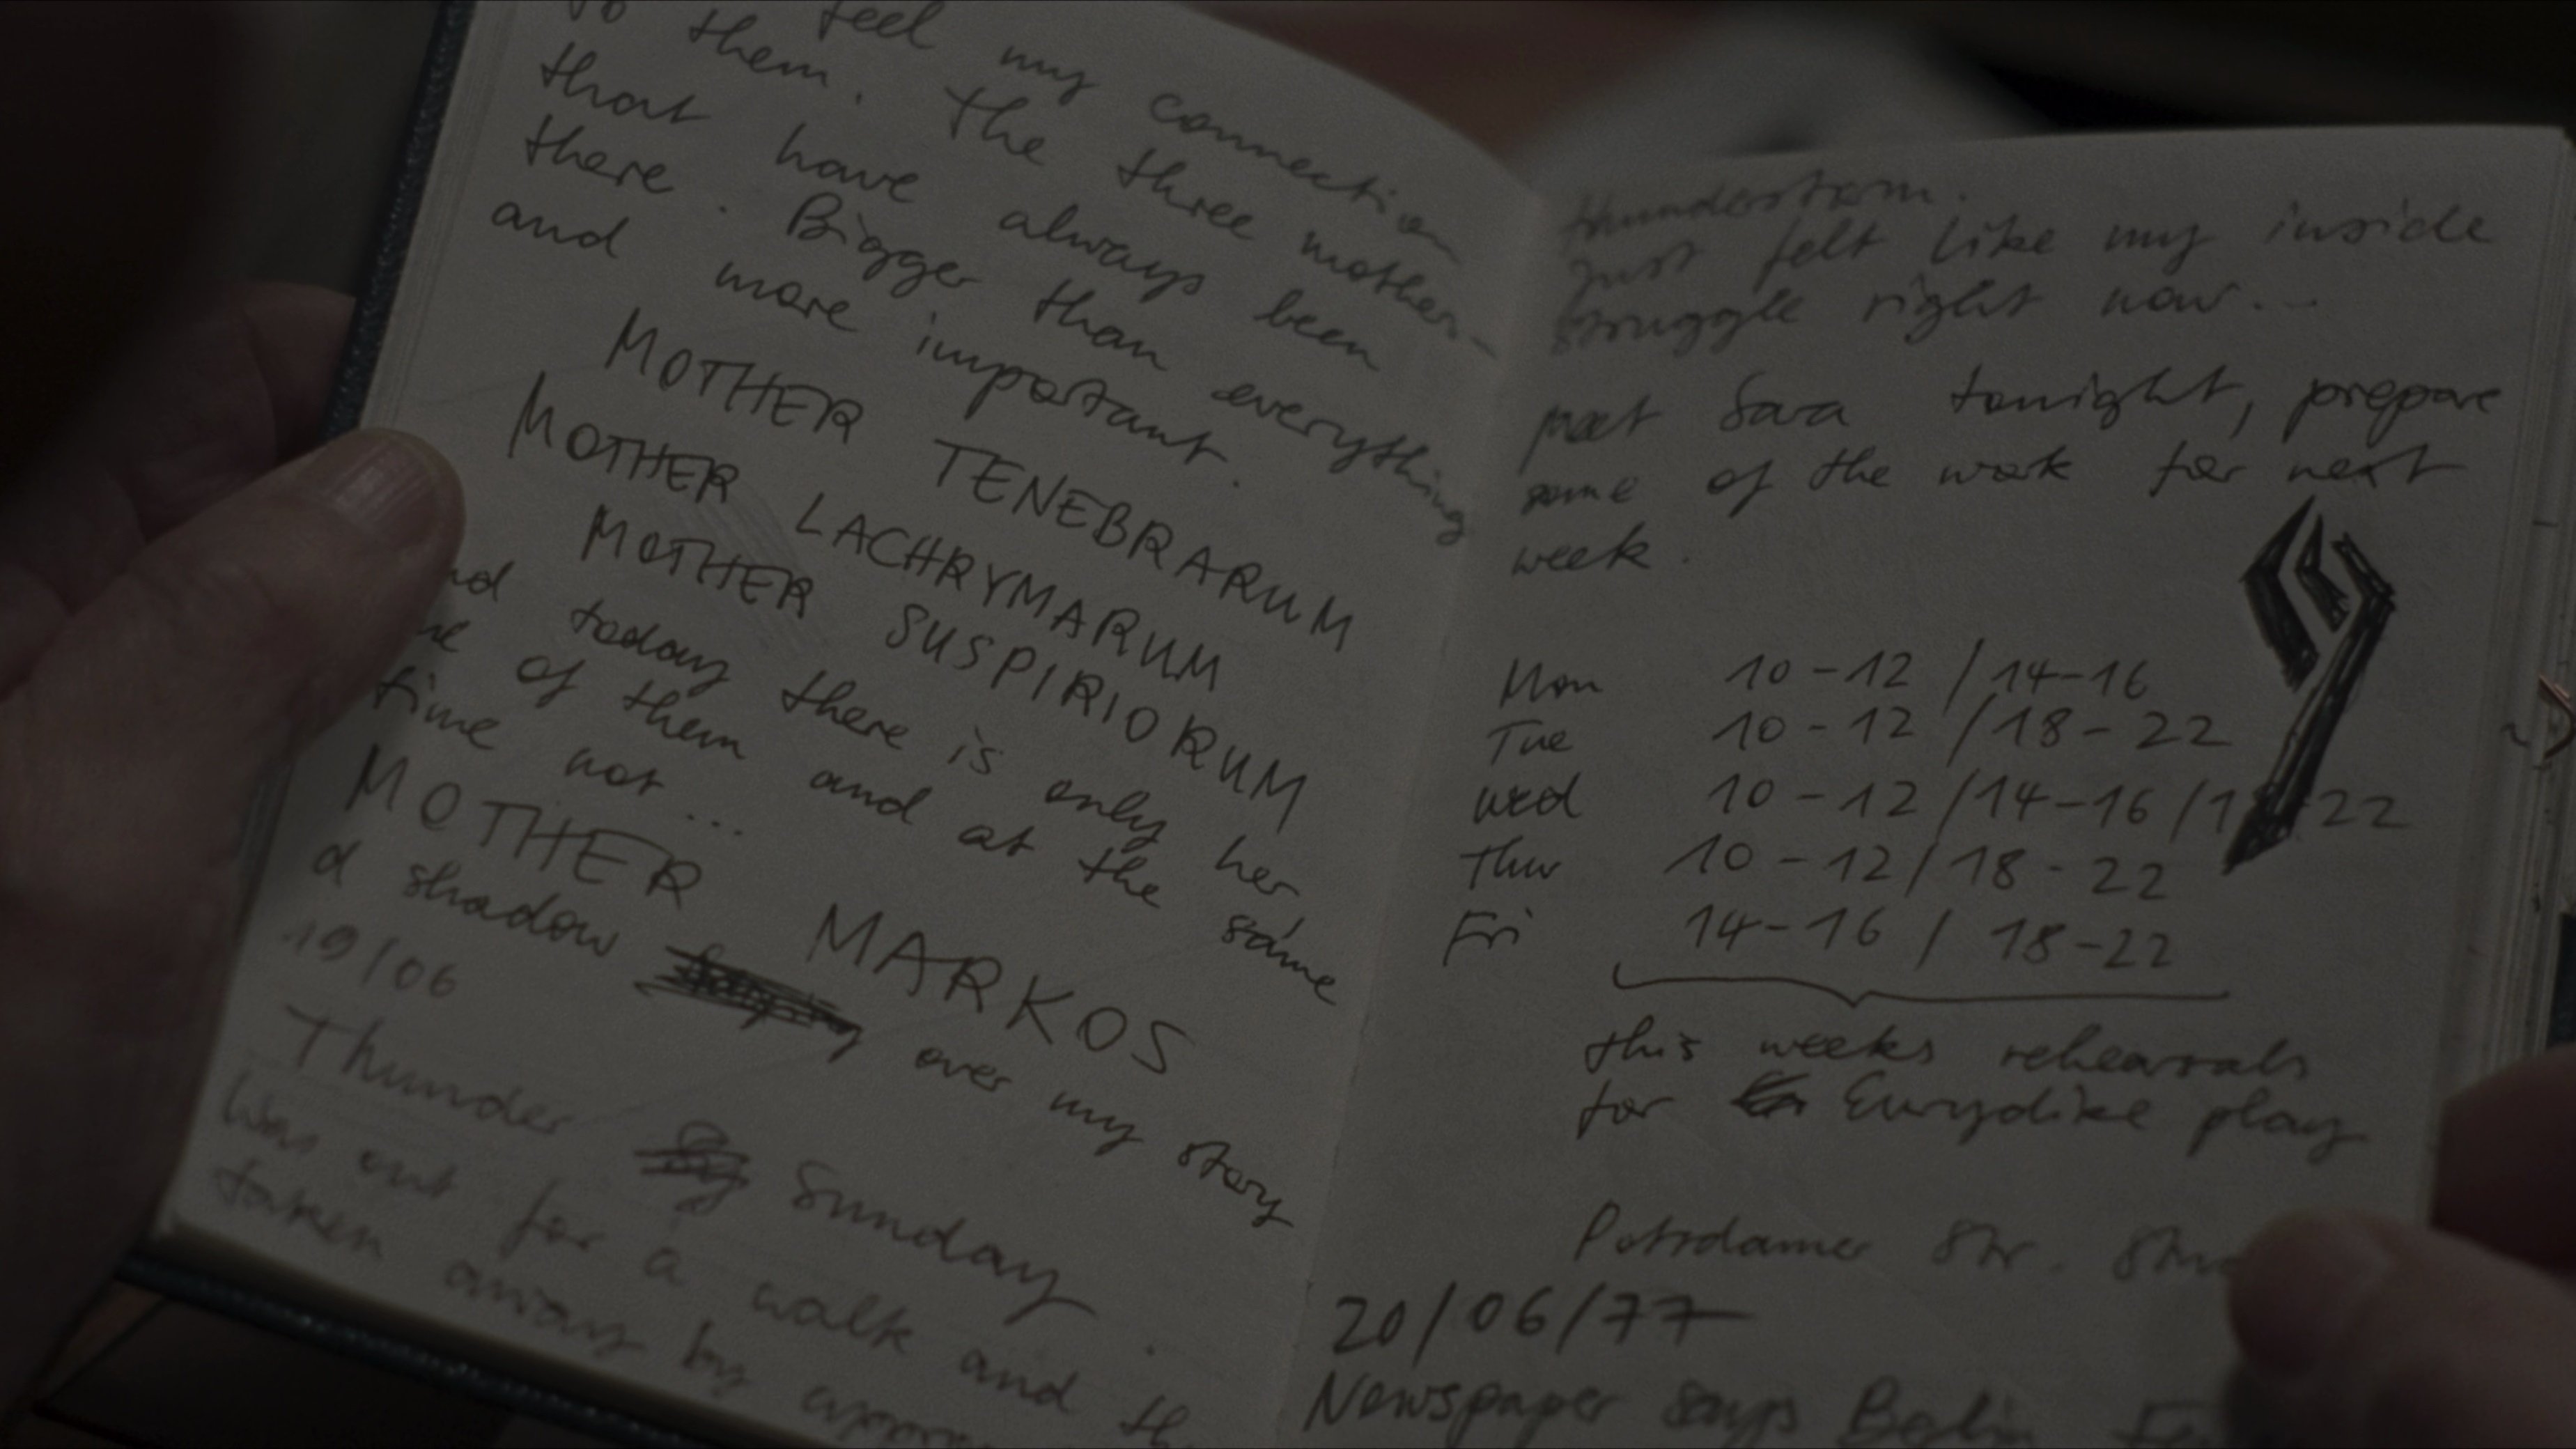 to feel my connection
them. The three mother-
that have always been
there. Bigger than everything
and more important.
MOTHER TENEBRARUM
MOTHER LACHRYMARUM
MOTHER SUSPIRIORUM
nd today there is only her
ne of them and at the same
time not...
MOTHER MARKOS
a shadow over my story
19/06
Thunder Sunday.
Was out for a walk and th
taken away by
thunderstorm.
Just felt like my inside
struggle right now...
meet Sara tonight, prepare
some of the work for next
week.
Mon 10-12 /14-16
Tue 10-12 /18-22
Wed 10-12 /14-16 /1 -22
Thur 10-12/18-22
Fri 14-16 / 18-22
this weeks rehearsals
for Eurydike play
Potsdamer Str.
20/06/77
Newspaper says Berlin